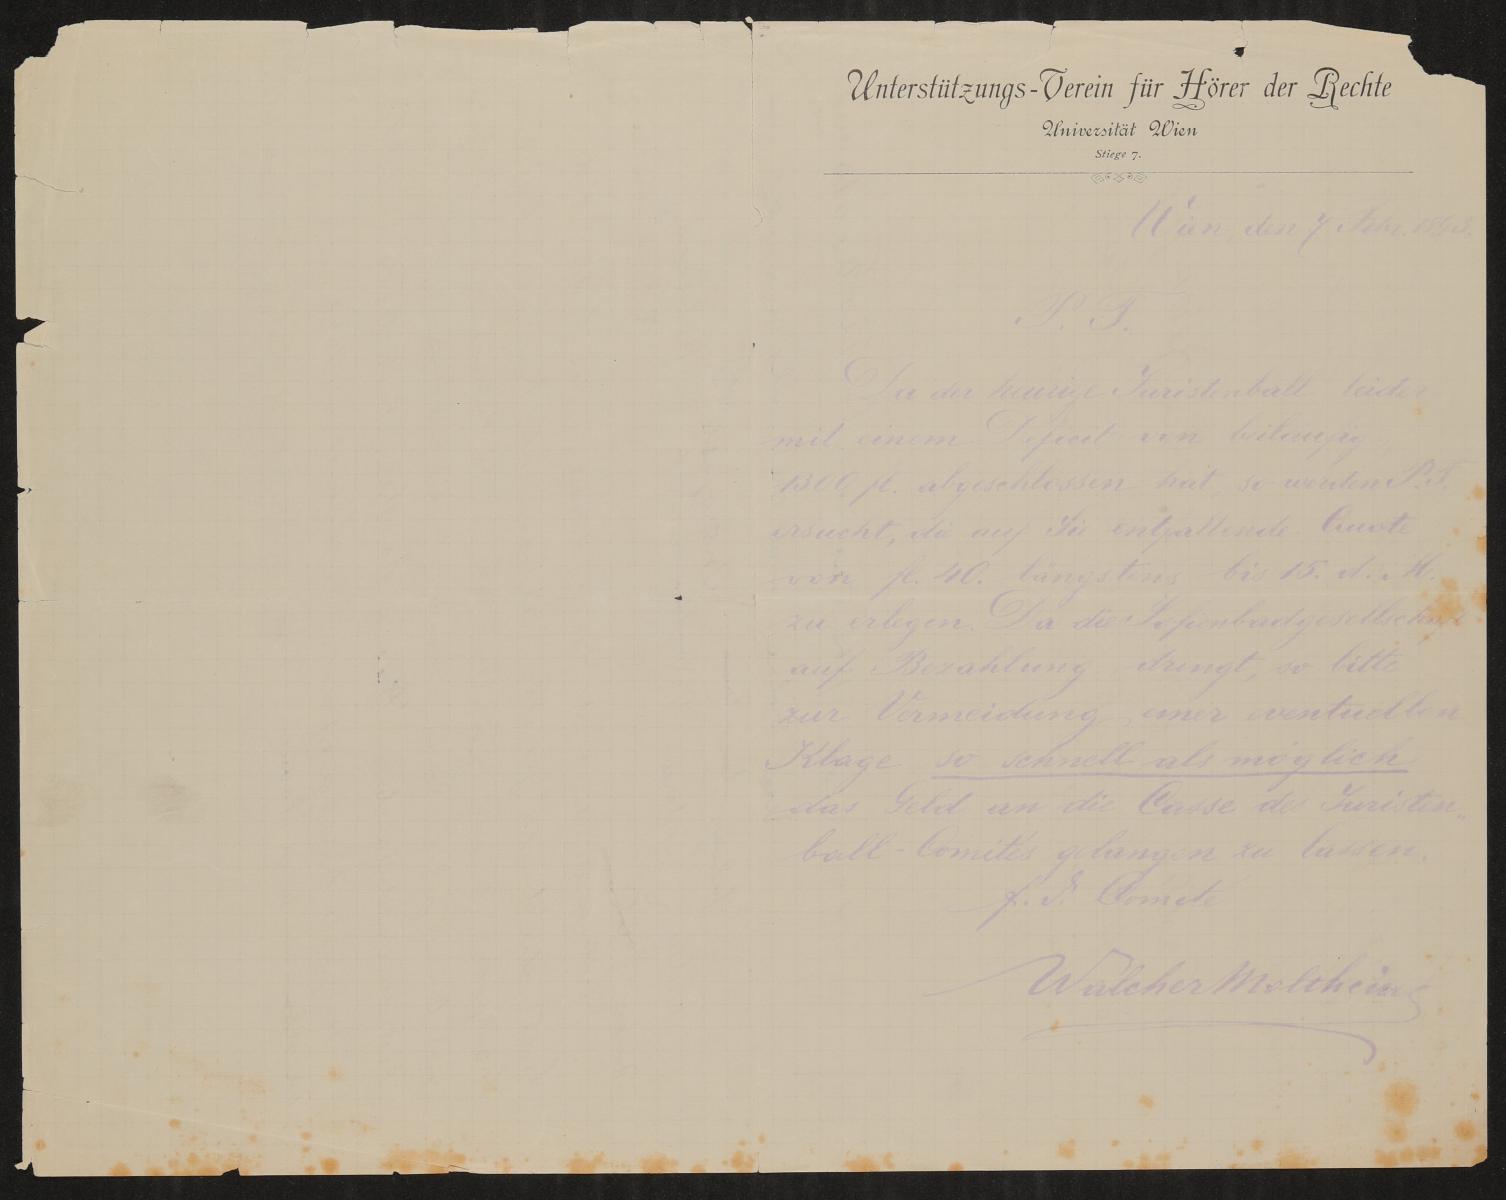 Unterstützungs-Verein für Hörer der Rechte
Universität Wien
Stiege 7.
Wien, den 7 Febr. 1893.
P. T.
Da der heurige Juristenball leider
mit einem Deficit von beiläufig
1300 fl. abgeschlossen hat, so werden P. T.
ersucht, die auf Sie entfallende Quote
von fl. 40. längstens bis 15. d. M.
zu erlegen. Da die Sofienbadgesellschaft
auf Bezahlung drengt, so bitte
zur Vermeidung einer eventuellen
Klage so schnell als möglich
das Geld an die Casse des Juristen„
ball-Comités gelangen zu lassen.
f. d. Comité
Walcher Moltheim